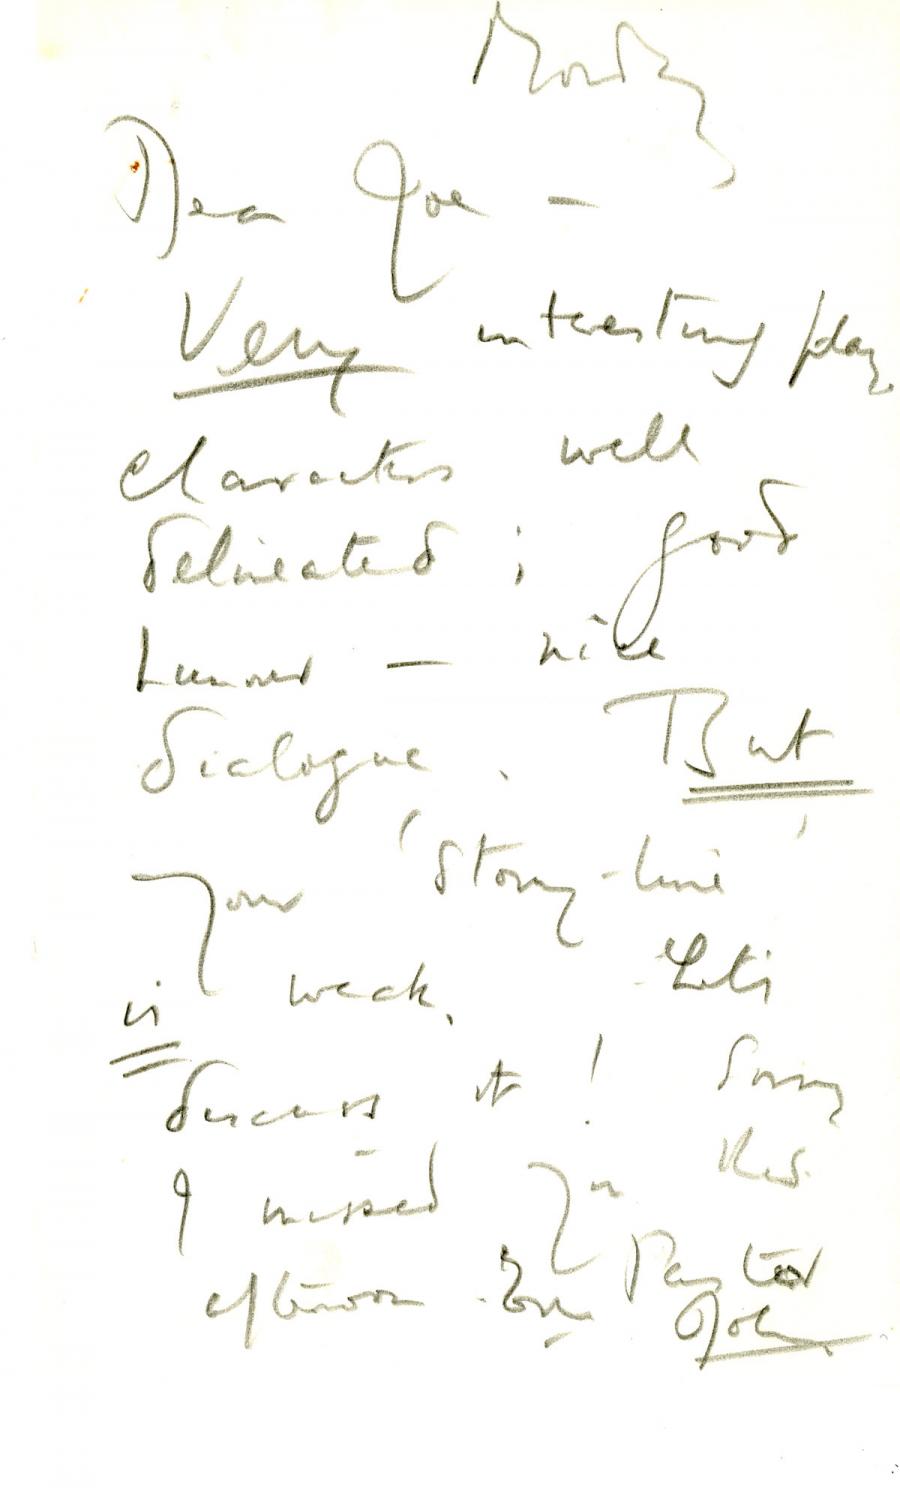 Monday
Dear Joe —
Very interesting play
characters well
delineated; good
humour — nice
dialogue. But
your 'story-line'
is weak. Let's
discuss it! Sorry
I missed you this
afternoon.
John